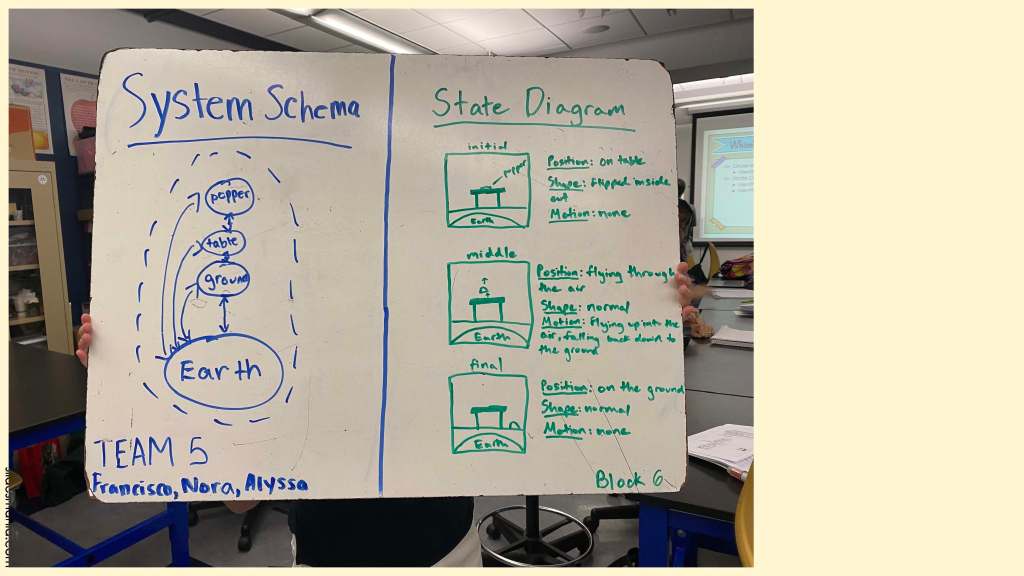 System Schema
popper
table
ground
Earth
TEAM 5
Francisco, Nora, Alyssa
State Diagram
initial
popper
Earth
Position: on table
Shape: flipped inside
out
Motion: none
middle
Earth
Position: flying through
the air
Shape: normal
Motion: flying up into the
air, falling back down to
the ground
final
Earth
Position: on the ground
Shape: normal
Motion: none
Block 6
slidesmania.com